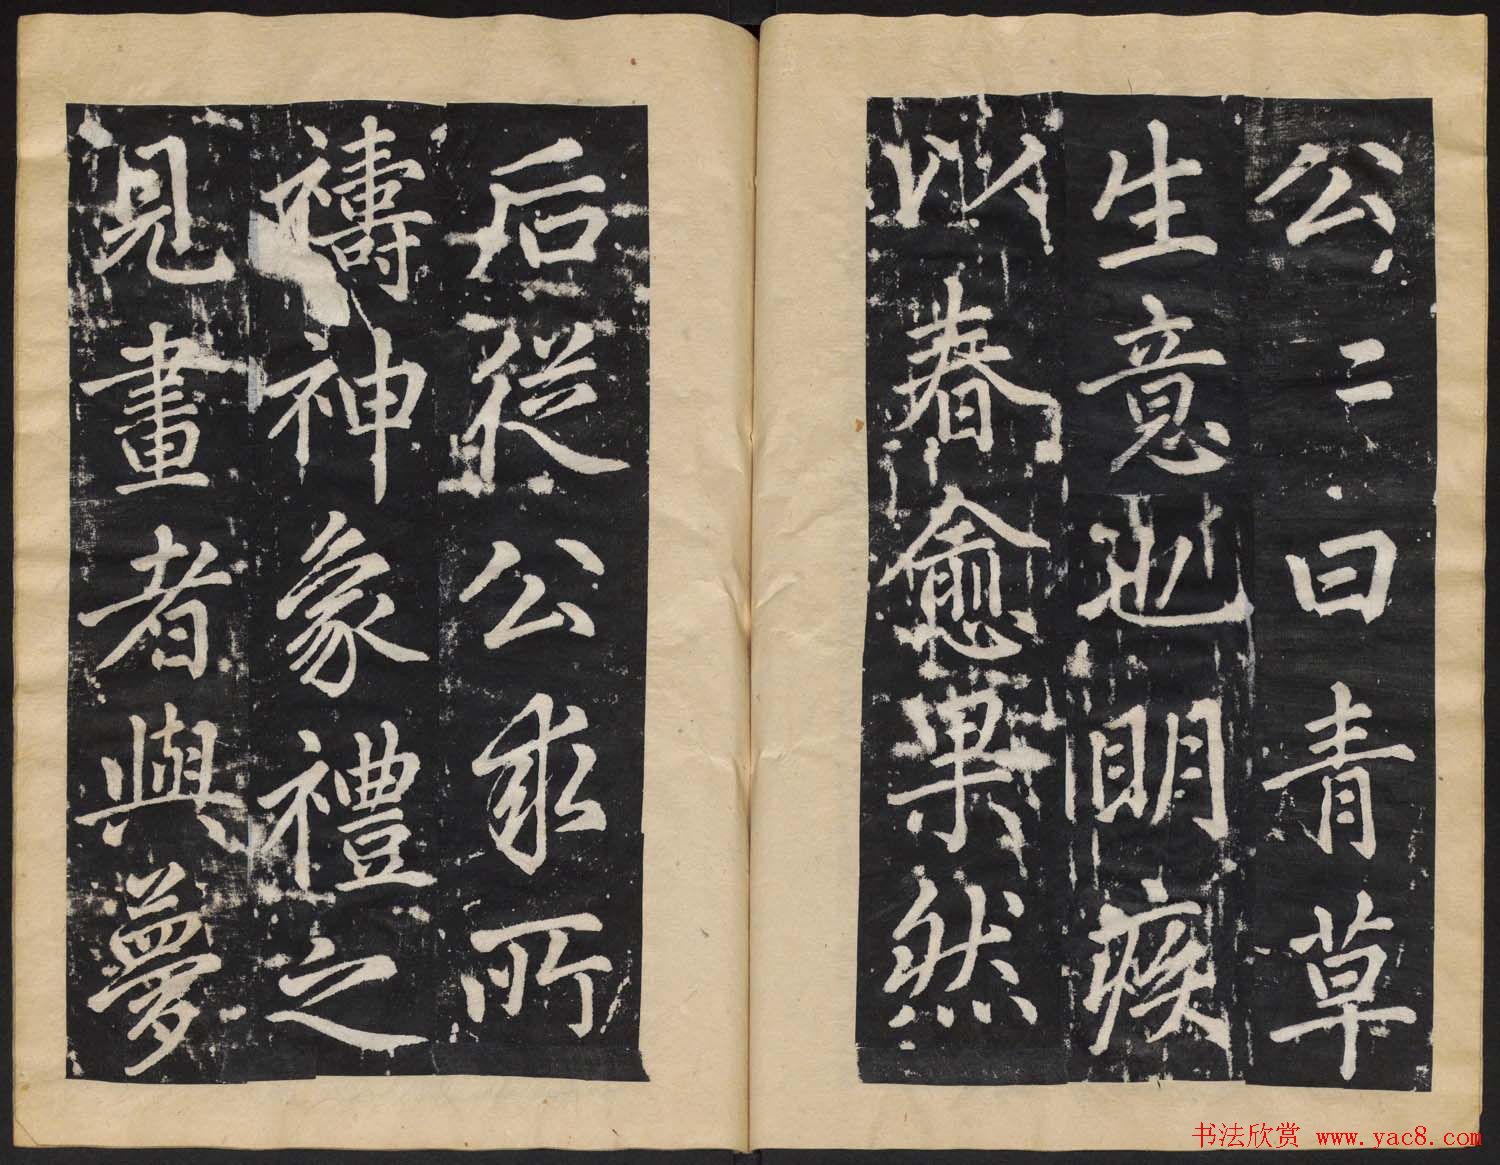 公公曰青草
生意也明疾
以春愈果然
后從公求所
禱神象禮之
見畫者與夢
书法欣赏 www.yac8.com